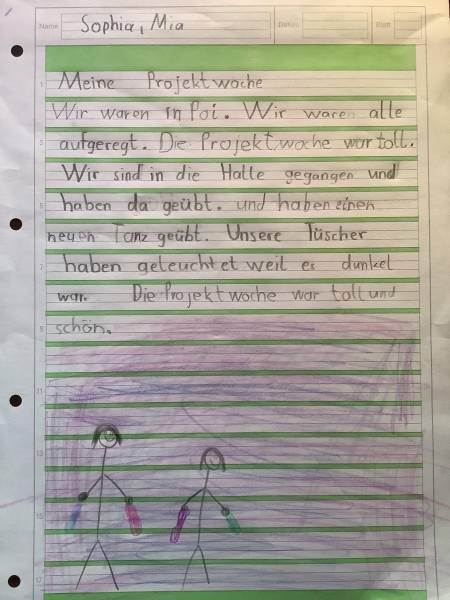 Name Sophia, Mia Datum Blatt
1 Meine Projektwoche
Wir waren in Poi. Wir waren alle
3 aufgeregt. Die Projektwoche war toll.
Wir sind in die Halle gegangen und
5 haben da geübt. und haben einen
neuen Tanz geübt. Unsere Tüscher
7 haben geleuchtet weil es dunkel
war. Die Projektwoche war toll und
9 schön.
11
13
15
17